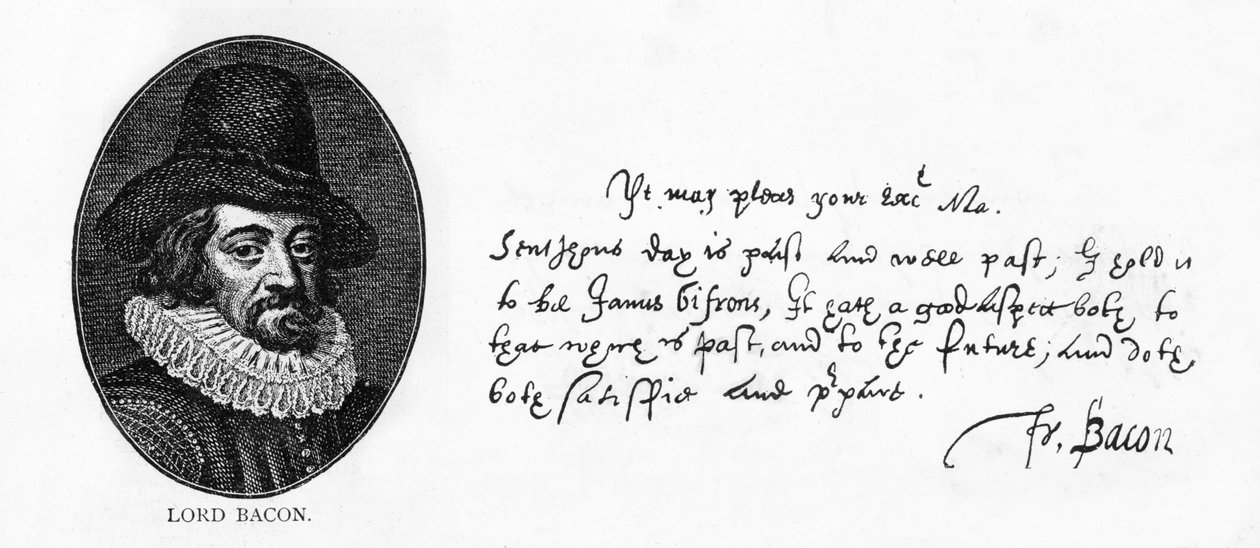 LORD BACON.
Yt may pleas your Exc^t Ma.
Sent Jhons day is past and well past; I hold it
to be Janus bifrons, It hath a good aspect both to
that which is past, and to the future; and doth
both satisfie and p^rpare.
Fr. Bacon